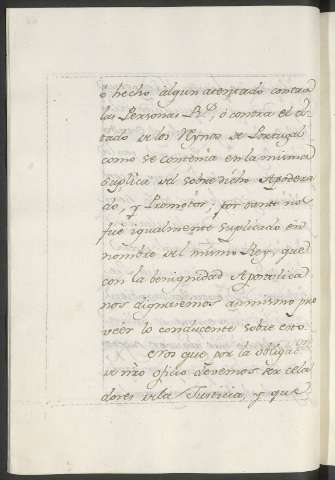 ô hecho algun atentado contra
las Personas R.s, ó contra el es-
tado de los Rynos de Portugal
como se contenia en la misma
suplica del sobredicho Apodera
do, y Promotor; por tanto nos
fué igualmente suplicado en
nombre del mismo Rey, que
con la benignidad Apostolica
nos dignasemos asimismo pro
veér lo conducente sobre esto.
Nos que por la obligac.on
de nro oficio devemos ser cela
dores de la Justicia, y que